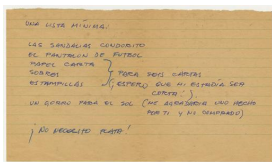 UNA LISTA MINIMA:
LAS SANDALIAS CONDORITO
EL PANTALON DE FUTBOL
PAPEL CARTA
SOBRES PARA SEIS CARTAS
ESTAMPILLAS (¡ESPERO QUE MI ESTADÍA SEA
CORTA!)
UN GORRO PARA EL SOL (ME AGRADARIA UNO HECHO
POR TI Y NO COMPRADO)
¡NO NECESITO PLATA!